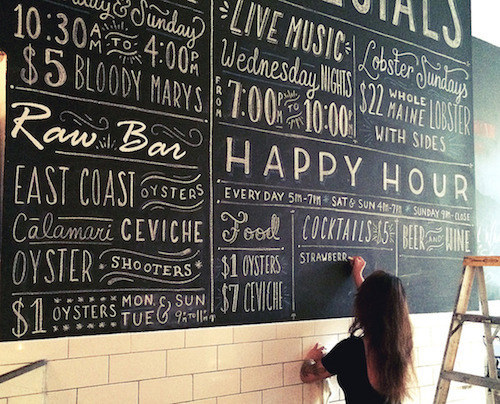 & Sunday
10:30 AM TO 4:00PM
$5 BLOODY MARYS
Raw Bar
EAST COAST OYSTERS
Calamari CEVICHE
OYSTER SHOOTERS
$1 OYSTERS MON, & SUN
TUE
LIVE MUSIC
Wednesday NIGHTS
FROM 7:00PM TO 10:00PM
Lobster Sundays
$22 WHOLE MAINE LOBSTER
WITH SIDES
HAPPY HOUR
EVERY DAY 5PM-7PM • SAT & SUN 4PM-7PM • SUNDAY 9PM-CLOSE
Food
$1 OYSTERS
$7 CEVICHE
COCKTAILS $5
STRAWBERR
BEER AND WINE